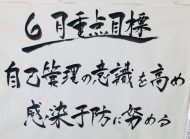 6月重点目標
自己管理の意識を高め
感染予防に努める